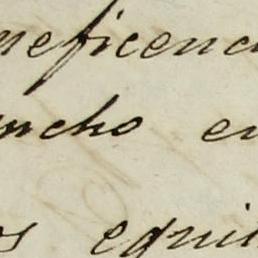 neficenc
ncho en
os equi